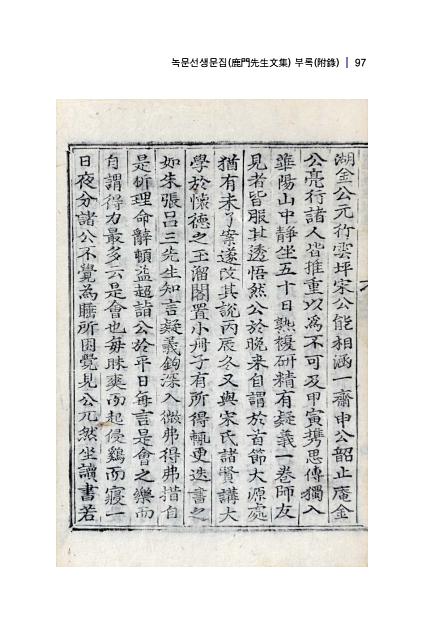 녹문선생문집(鹿門先生文集) 부록(附錄) | 97
湖金公元行雲坪宋公能相涵一齋申公韶止庵金
公亮行諸人皆推重以爲不可及甲寅携思傳獨入
華陽山中靜坐五十日熟複硏精有疑義一卷師友
見者皆服其透悟然公於晩来自謂於首節大源處
猶有未了案遂改其說丙辰冬又與宋氏諸賢講大
學於懷德之玉溜閣置小冊子有所得輒更迭書之
如朱張呂三先生知言疑義鉤深入微弗得弗措自
是析理命辭頓益超詣公於平日每言是會之樂而
自謂得力最多云是會也每昧爽而起侵鷄而寢一
日夜分諸公不覺為睡所困覺見公兀然坐讀書若